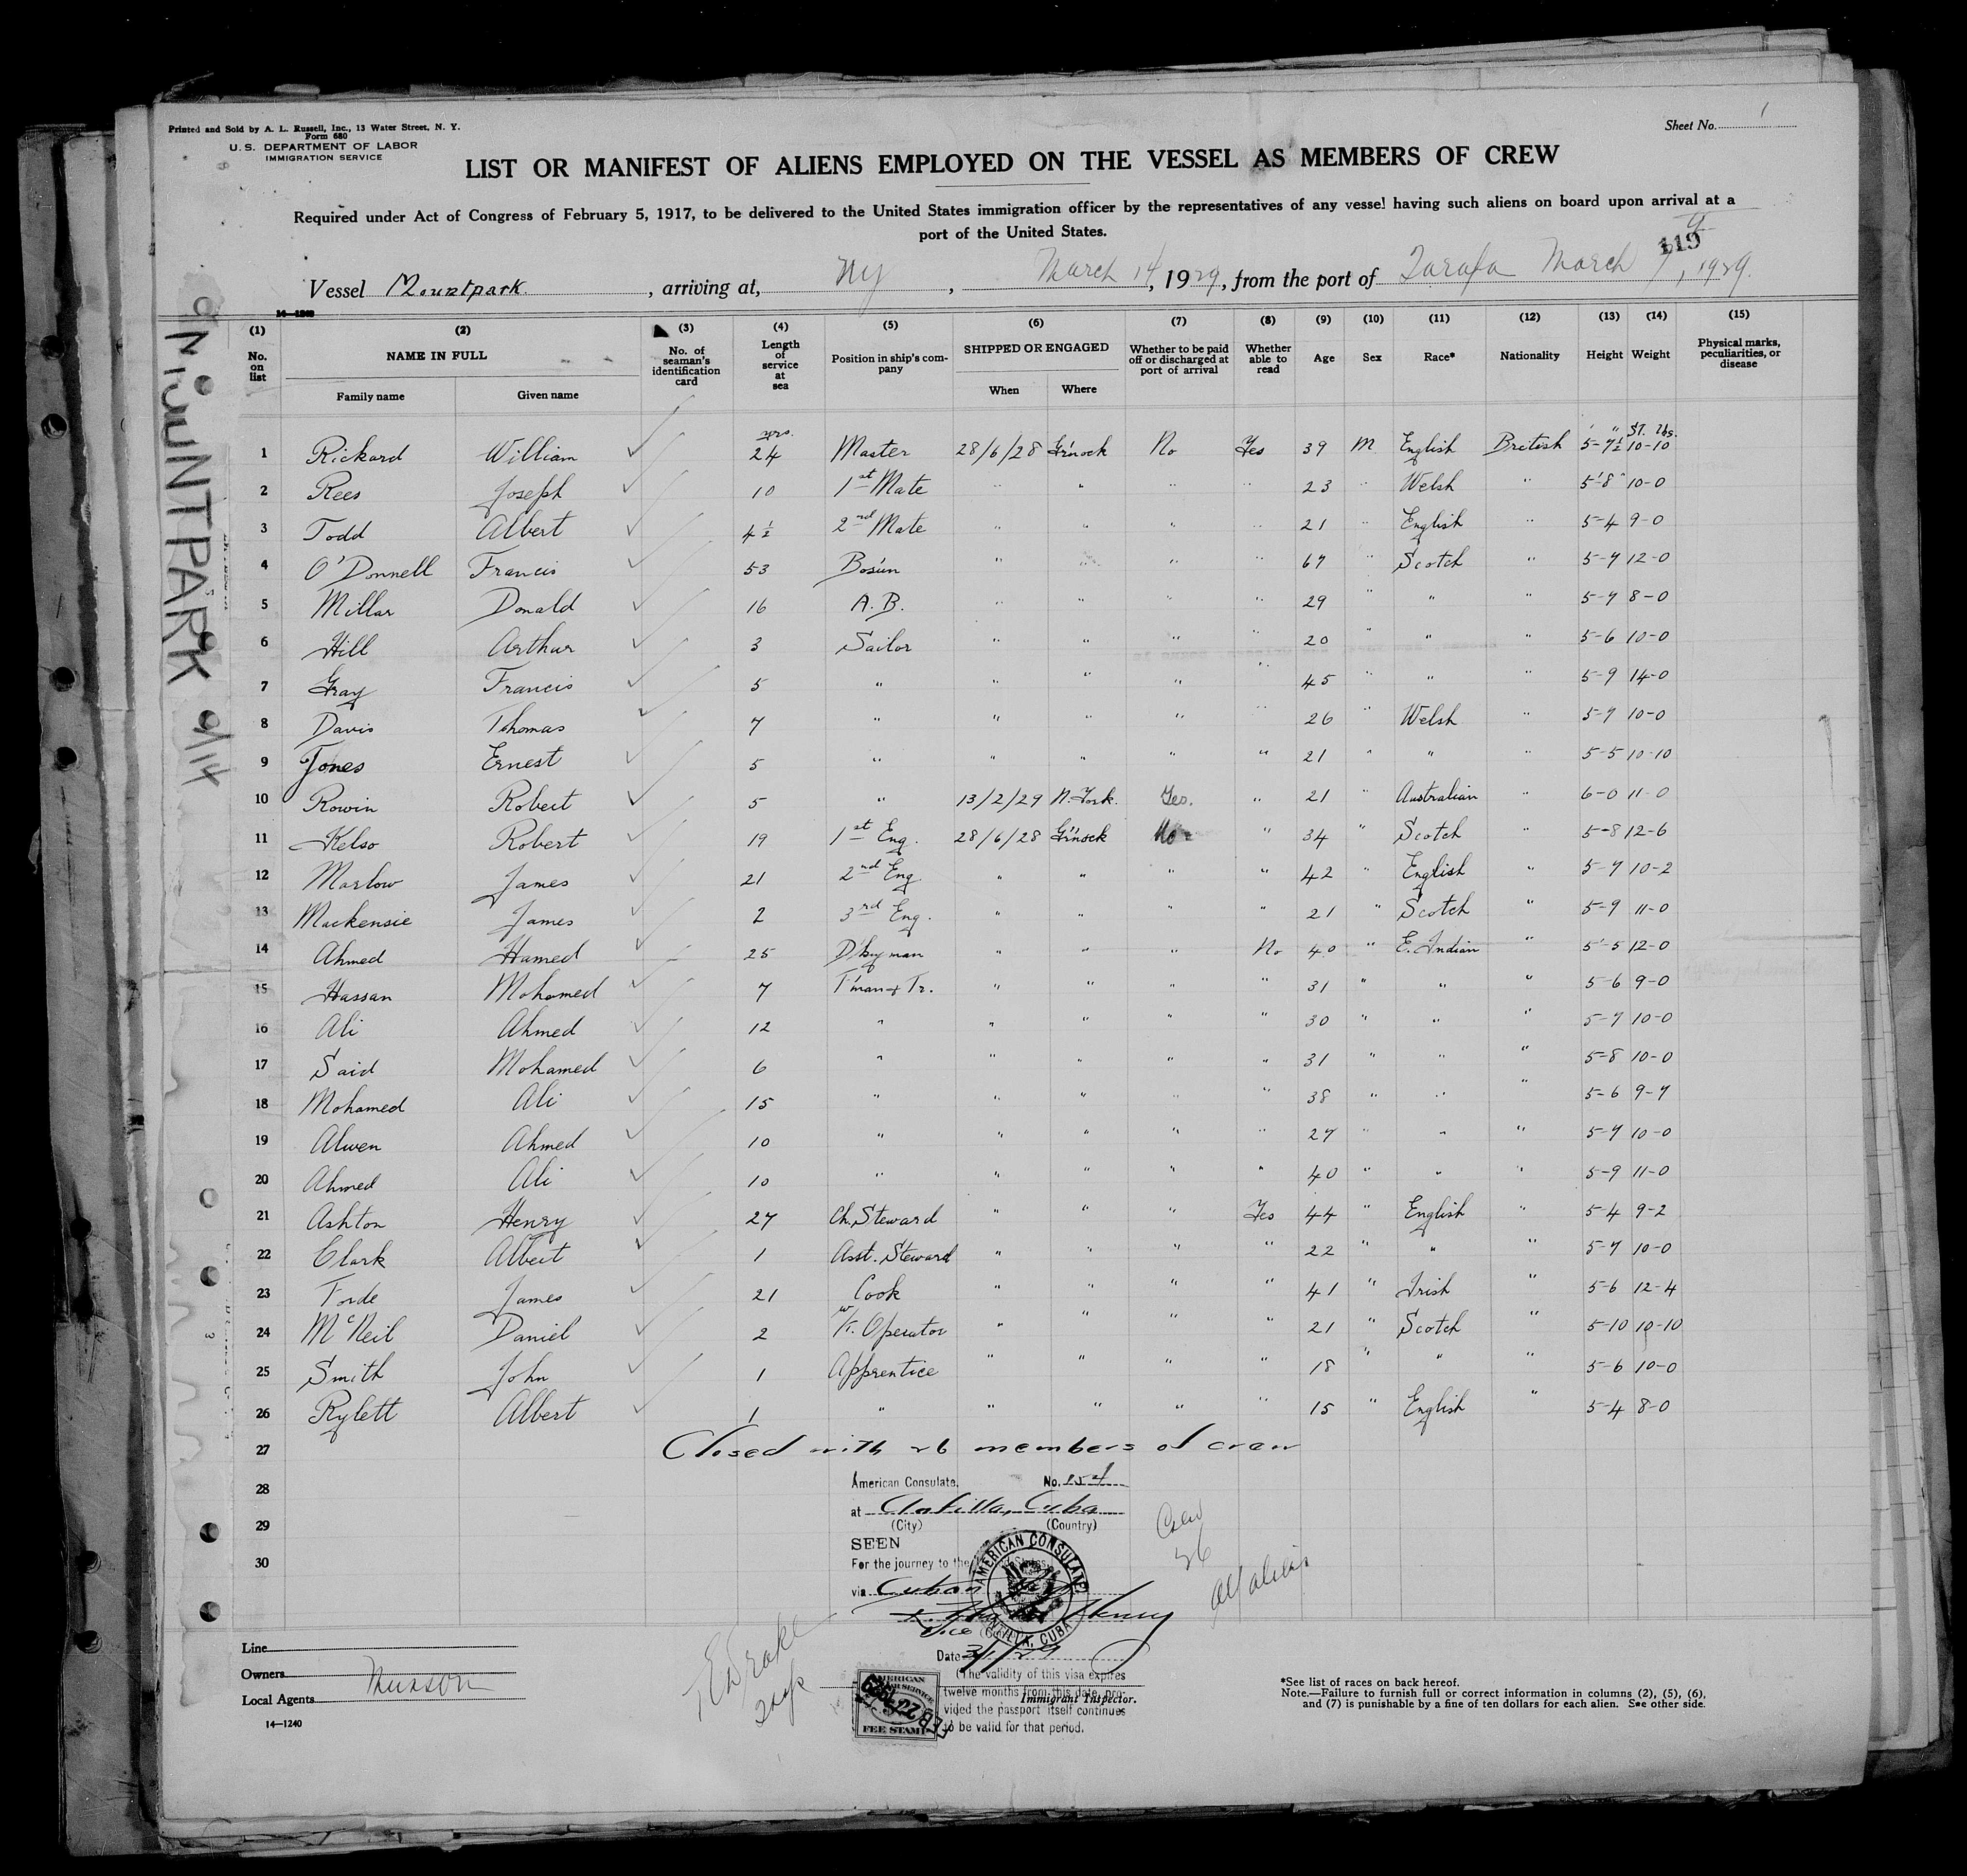 Printed and Sold by A. L. Russell, Inc., 13 Water Street, N. Y.
Form 680
U. S. DEPARTMENT OF LABOR
IMMIGRATION SERVICE
Sheet No. 1
LIST OR MANIFEST OF ALIENS EMPLOYED ON THE VESSEL AS MEMBERS OF CREW
Required under Act of Congress of February 5, 1917, to be delivered to the United States immigration officer by the representatives of any vessel having such aliens on board upon arrival at a
port of the United States.
119
Vessel Mountpark, arriving at, NY, March 14, 1929, from the port of Tarafa March 7, 1929.
MOUNTPARK 9/14
14-1240
(1) (2) (3) (4) (5) (6) (7) (8) (9) (10) (11) (12) (13) (14) (15)
No. on list NAME IN FULL No. of seaman's identification card Length of service at sea Position in ship's company SHIPPED OR ENGAGED Whether to be paid off or discharged at port of arrival Whether able to read Age Sex Race* Nationality Height Weight Physical marks, peculiarities, or disease
Family name Given name When Where
yrs. ' " ST. lbs.
1 Rickard William 24 Master 28/6/28 G'rnock No Yes 39 M English British 5-7½ 10-10
2 Rees Joseph 10 1st Mate " " " " 23 " Welsh " 5'8" 10-0
3 Todd Albert 4½ 2nd Mate " " " " 21 " English " 5-4 9-0
4 O'Donnell Francis 53 Bos'un " " " " 67 " Scotch " 5-7 12-0
5 Millar Donald 16 A.B. " " " " 29 " " " 5-7 8-0
6 Hill Arthur 3 Sailor " " " " 20 " " " 5-6 10-0
7 Gray Francis 5 " " " " " 45 " " " 5-9 14-0
8 Davis Thomas 7 " " " " " 26 " Welsh " 5-7 10-0
9 Jones Ernest 5 " " " " " 21 " " " 5-5 10-10
10 Rowin Robert 5 " 13/2/29 N. York. Yes. " 21 " Australian " 6-0 11-0
11 Kelso Robert 19 1st Eng. 28/6/28 G'rnock No " 34 " Scotch " 5-8 12-6
12 Marlow James 21 2nd Eng. " " " " 42 " English " 5-7 10-2
13 Mackensie James 2 3rd Eng. " " " " 21 " Scotch " 5-9 11-0
14 Ahmed Hamed 25 D'kyman " " " No 40 " E. Indian " 5-5 12-0
15 Hassan Mohamed 7 F'man & Tr. " " " " 31 " " " 5-6 9-0
16 Ali Ahmed 12 " " " " " 30 " " " 5-7 10-0
17 Said Mohamed 6 " " " " " 31 " " " 5-8 10-0
18 Mohamed Ali 15 " " " " " 38 " " " 5-6 9-7
19 Alwen Ahmed 10 " " " " " 27 " " " 5-7 10-0
20 Ahmed Ali 10 " " " " " 40 " " " 5-9 11-0
21 Ashton Henry 27 Ch. Steward " " " Yes 44 " English " 5-4 9-2
22 Clark Albert 1 Asst. Steward " " " " 22 " " " 5-7 10-0
23 Forde James 21 Cook " " " " 41 " Irish " 5-6 12-4
24 McNeil Daniel 2 W/T. Operator " " " " 21 " Scotch " 5-10 10-10
25 Smith John 1 Apprentice " " " " 18 " " " 5-6 10-0
26 Rylett Albert 1 " " " " " 15 " English " 5-4 8-0
27 Closed with 26 members of crew
28
29
30
American Consulate, No. 154
at Antilla, Cuba
(City) (Country)
SEEN
For the journey to the United States
via Cuban
Henry
Vice
Date 3/1/29
(The validity of this visa expires
twelve months from this date, pro-
vided the passport itself continues
to be valid for that period.
AMERICAN CONSULAR
ANTILLA, CUBA
Crew
26
All aliens
AMERICAN
SERVICE
FEE STAMP
FEB 27 1929
Immigrant Inspector.
Line
Owners
Local Agents Munson
14-1240
*See list of races on back hereof.
Note.—Failure to furnish full or correct information in columns (2), (5), (6),
and (7) is punishable by a fine of ten dollars for each alien. See other side.